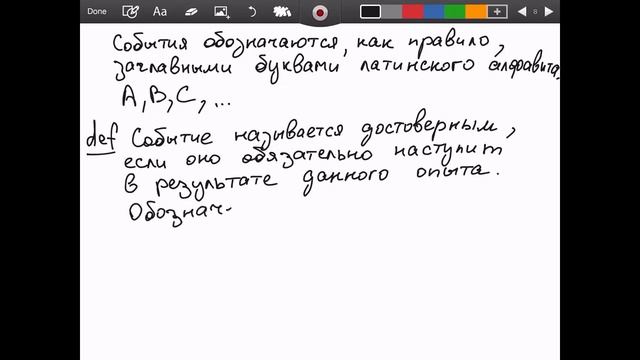 Done
Aa
8
События обозначаются, как правило,
заглавными буквами латинского алфавита,
A, B, C, ...
def Событие называется достоверным,
если оно обязательно наступит
в результате данного опыта.
Обознач